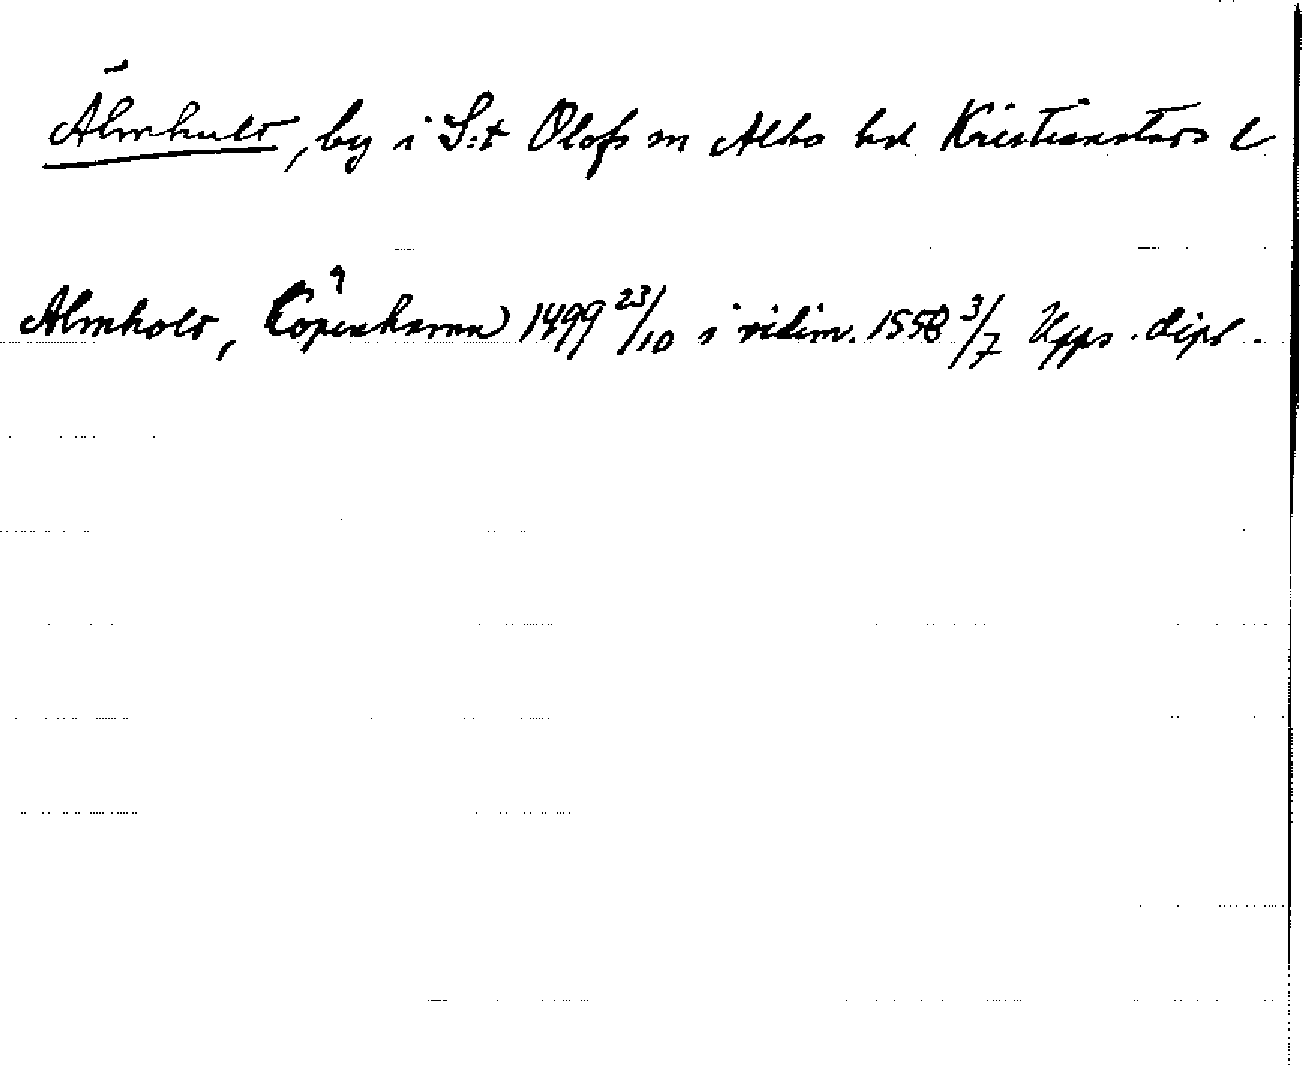 Älmhult, by i S:t Olofs sn Albo hd Kristianstads l
Almholt, Copenhamn 1499 23/10 i vidim. 1558 3/7 Upps. dipl.